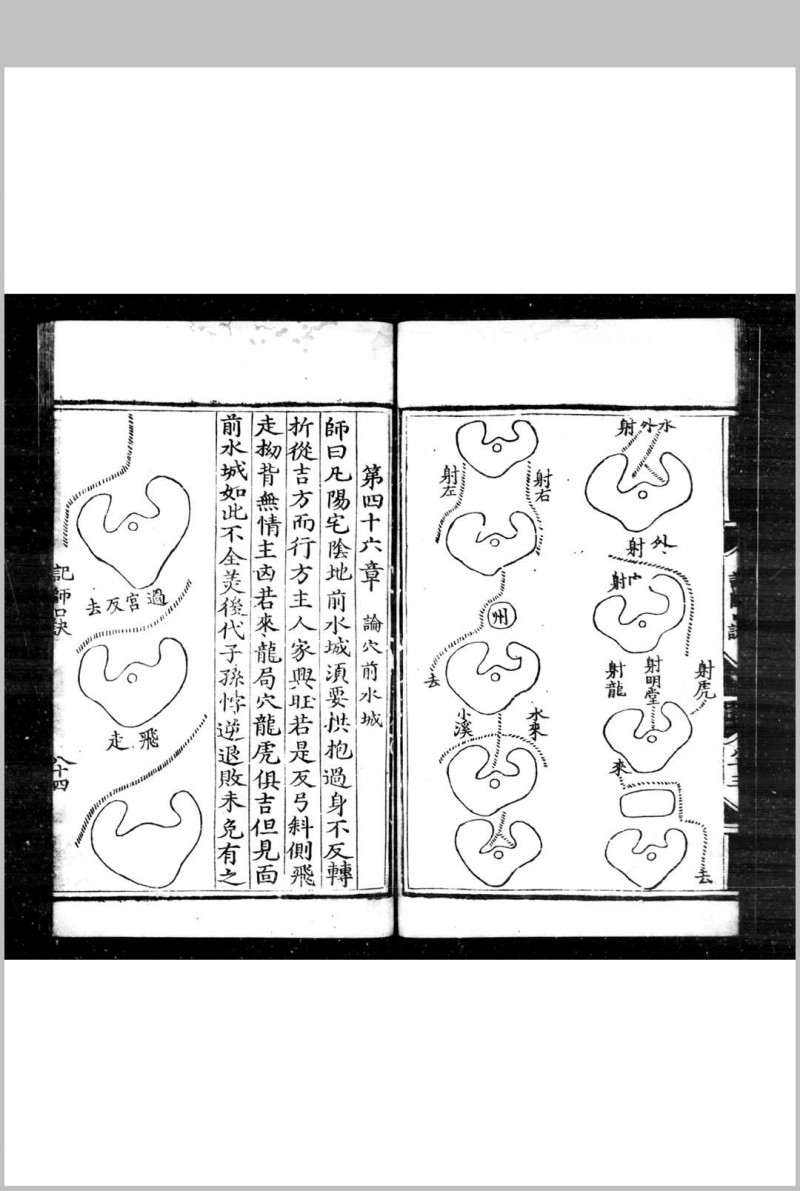 水外射
外射
内射
射虎
射明堂
射龍
來
去
射右
射左
州
去
水來
小溪
第四十六章 論穴前水城
師曰凡陽宅陰地前水城須要拱抱過身不反轉
折從吉方而行方主人家興旺若是反弓斜側飛
走拗背無情主凶若來龍局穴龍虎俱吉但見面
前水城如此不全美後代子孫悖逆退敗未免有之
過宮反去
飛走
記師口訣
八十四